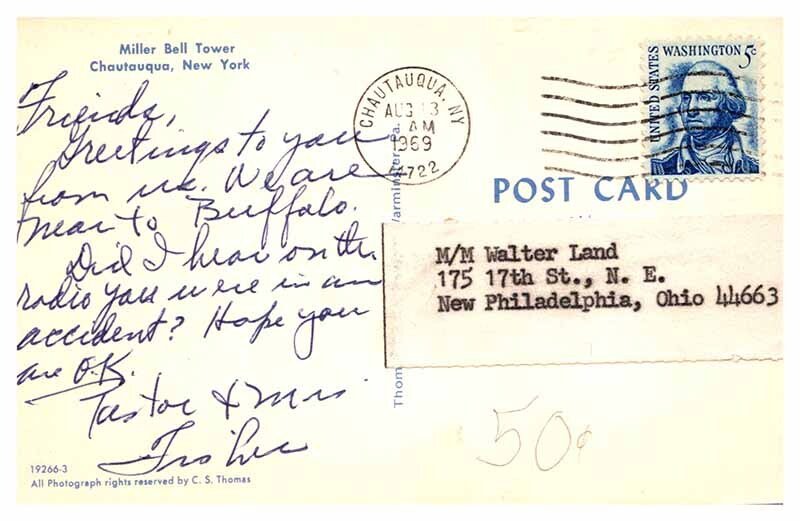 Miller Bell Tower
Chautauqua, New York
Friends,
Greetings to you
from us. We are
near to Buffalo.
Did I hear on the
radio you were in an
accident? Hope you
are O.K.
Pastor & Mrs.
CHAUTAUQUA, NY
AUG 13
AM
1969
14722
UNITED STATES
WASHINGTON 5¢
POST CARD
M/M Walter Land
175 17th St., N. E.
New Philadelphia, Ohio 44663
Thom
Warminster, Pa.
50¢
19266-3
All Photograph rights reserved by C. S. Thomas